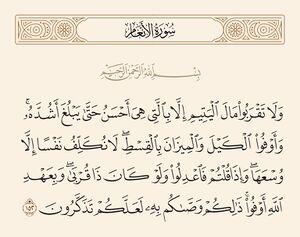 سُورَةُ الأَنْعَام
بِسْمِ اللَّهِ الرَّحْمَٰنِ الرَّحِيمِ
وَلَا تَقْرَبُوا۟ مَالَ ٱلْيَتِيمِ إِلَّا بِٱلَّتِى هِىَ أَحْسَنُ حَتَّىٰ يَبْلُغَ أَشُدَّهُۥ ۖ
وَأَوْفُوا۟ ٱلْكَيْلَ وَٱلْمِيزَانَ بِٱلْقِسْطِ ۖ لَا نُكَلِّفُ نَفْسًا إِلَّا
وُسْعَهَا ۖ وَإِذَا قُلْتُمْ فَٱعْدِلُوا۟ وَلَوْ كَانَ ذَا قُرْبَىٰ ۖ وَبِعَهْدِ
ٱللَّهِ أَوْفُوا۟ ۚ ذَٰلِكُمْ وَصَّىٰكُم بِهِۦ لَعَلَّكُمْ تَذَكَّرُونَ ١٥٢